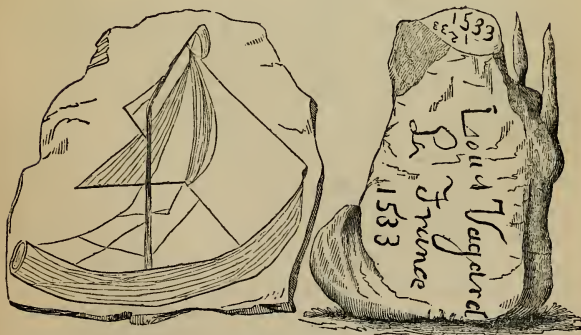 1533
Louis Vagard
La France
1533